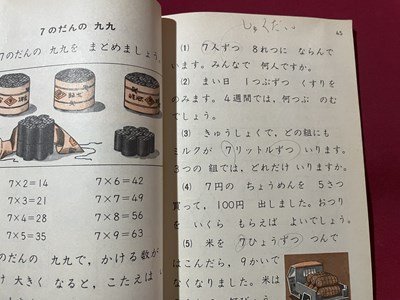 7のだんの 九九
7のだんの 九九を まとめましょう。
7×2=14
7×3=21
7×4=28
7×5=35
7×6=42
7×7=49
7×8=56
7×9=63
のだんの 九九で，かける数が
大きく なると，こたえは い
しゅくだい。
45
(1) 7人ずつ 8れつに ならんで
います。みんなで 何人ですか。
(2) まい日 1つぶずつ くすりを
のみます。4週間では，何つぶ のむ
でしょう。
(3) きゅうしょくで，どの組にも
ミルクが 7リットルずつ いります。
3つの 組では，どれだけ いりますか。
(4) 7円の ちょうめんを 5さつ
買って，100円 出しました。おつり
を いくら もらえば よいでしょう。
(5) 米を 7ひょうずつ つんで
はこんだら，9かいで
なくなりました。米は